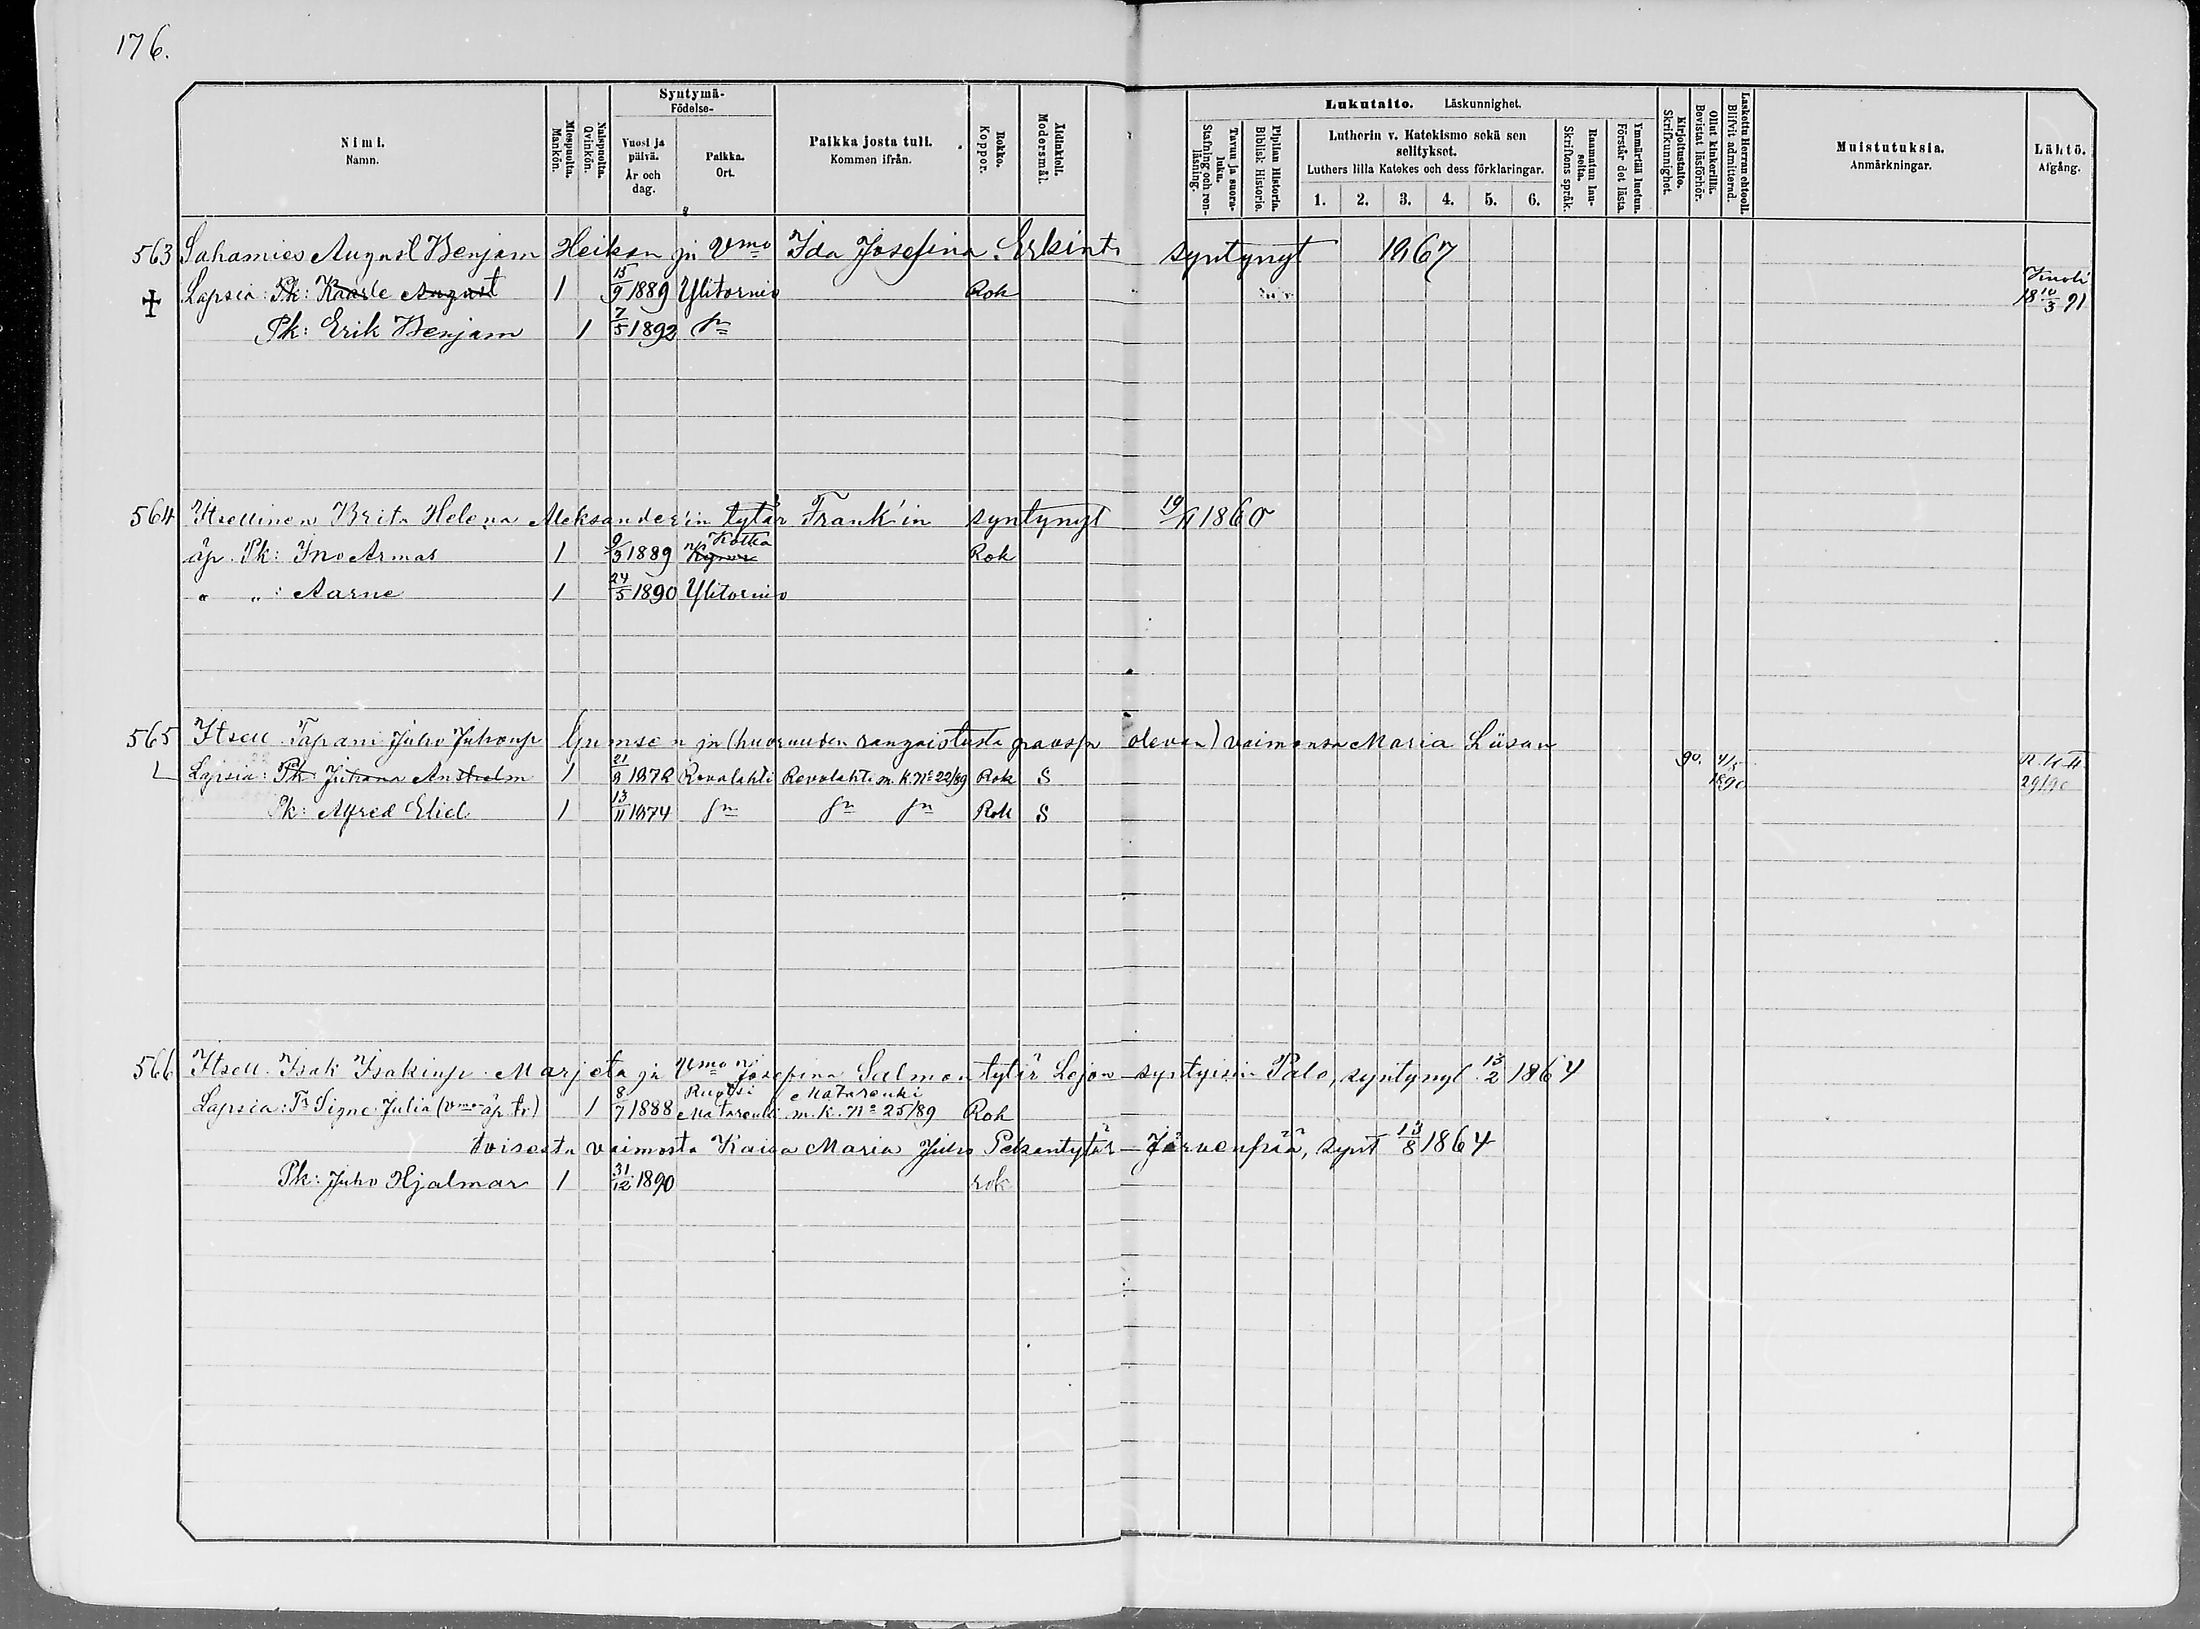 176.
Nimi.
Namn.
Miespuolta.
Mankön.
Naispuolta.
Qvinkön.
Syntymä-
Födelse-
Vuosi ja päivä.
År och dag.
Paikka.
Ort.
Paikka josta tuli.
Kommen ifrån.
Rokko.
Koppor.
Äidinkieli.
Modersmål.
Lukutaito. Läskunnighet.
Tavuu ja suora-luku.
Stafning och ren-läsning.
Piplian Historia.
Biblisk Historie.
Lutherin v. Katekismo sekä sen
selitykset.
Luthers lilla Katekes och dess förklaringar.
1. 2. 3. 4. 5. 6.
Raamatun lau-seita.
Skriftens språk.
Ymmärtää luetun.
Förstår det lästa.
Kirjoitustaito.
Skrifkunnighet.
Ollut kinkerillä.
Bevistat läsförhör.
Laskettu Herran ehtooll.
Blifvit admitterad.
Muistutuksia.
Anmärkningar.
Lähtö.
Afgång.
563 Sahamies August Benjam Heikan ja Vmo Ida Josefina Erkint. syntynyt 1867
Lapsia: Pk: Kaarle August 1 15/9 1889 Ylitornio Rok Kuoli 18 10/3 91
Pk: Erik Benjam 1 7/5 1892 sn
564 Itsellinen Brita Helena Aleksander'in tytär Frank'in syntynyt 19/11 1860
äp. Pk: Ino Armas 1 9/3 1889 Kotka Rok
„ „: Aarne 1 24/5 1890 Ylitornio
565 Itsell. Tapani Juho Juhonp. ja (huoruuden rangaistusta olevan) vaimonsa Maria Liisan
Lapsia: Pk Juhana Anshelm 1 21/8 1872 Revolahti Revolahti m. K. No 22/89 Rok S 90. 1890 29/90
Pk: Alfred Eliel 1 13/11 1874 sn sn sn Rok S
566 Itsell. Isak Isakinp. Marjeta ja Vmo Josefina Salmon tytär Lejon syntyisin Palo, syntynyt 13/2 1864
Lapsia: Tr Signe Julia (Vmo äp. tr) 1 8/7 1888 Ruotsi Matarenki Matarenki m. K. No 25/89 Rok
toisesta vaimosta Kaisa Maria Juho Pekantytär Järvenpää, synt 13/8 1864
Pk: Juho Hjalmar 1 31/12 1890 rok